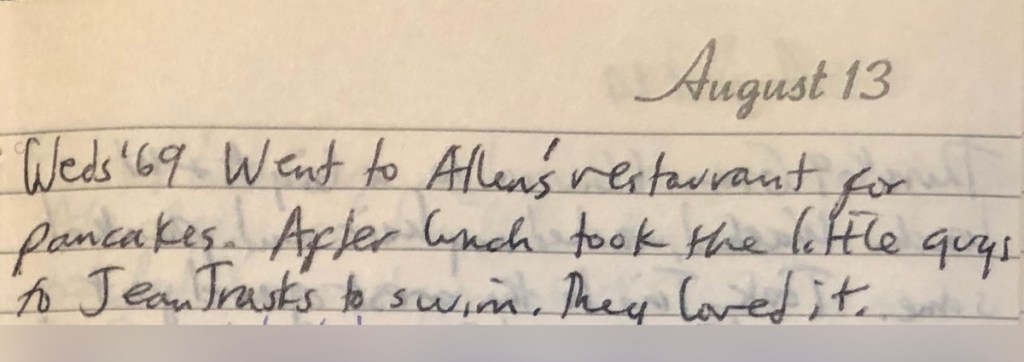 August 13
Weds '69 Went to Allen's restaurant for
pancakes. After lunch took the little guys
to Jean Trasks to swim. They loved it.